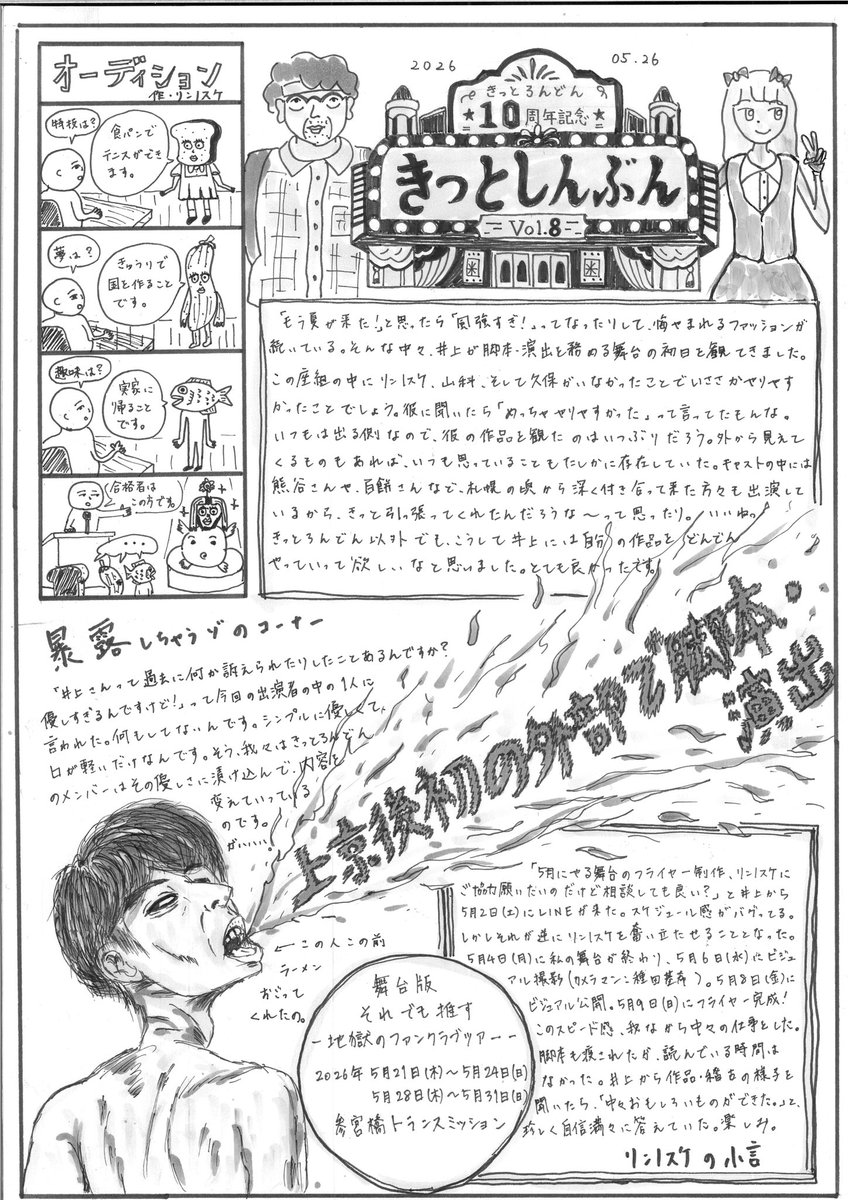 オーディション
作・リン1スケ
特技は?
食パンで
テニスができ
ます。
夢は?
きゅうりで
国を作ること
です。
趣味は?
実家に
帰ること
です。
合格者は
この方です。
2026
05.26
きっとろんどん
10周年記念
きっとしんぶん
Vol.8
「もう夏が来た!」と思ったら「風強すぎ!」ってなったりして、悩やまれるファッションが
続いている。そんな中々、井上が脚本・演出を務める舞台の初日を観てきました。
この座組の中にリン1スケ、山科、そして久保がいなかったことでいささかやりやす
かったことでしょう。彼に聞いたら「めっちゃやりやすかった」って言ってたもんな。
いつもは出る側なので、彼の作品を観たのはいつぶりだろう。外から見えて
くるものもあれば、いつも思っていることもたしかに存在していた。キャストの中には
熊谷さんや、百餅さんなど、札幌の頃から深く付き合って来た方々も出演して
いるから、きっと引っ張ってくれたんだろうな〜って思ったり。いいねっ
きっとろんどん以外でも、こうして井上には自分の作品をどんどん
やっていって欲しいなと思いました。とても良かったです。
暴露しちゃうゾのコーナー
「井上さんって過去に何か訴えられたりしたことあるんですか?
優しすぎるんですけど!」って今回の出演者の中の1人に
言われた。何もしてないんです。シンプルに優しくて、
口が軽いだけなんです。そう、我々はきっとろんどん
のメンバーはその優しさに漬け込んで、内容を
変えていっている
のです。
がいいい。
上京後初の外部で脚本・
演出
←この人この前
ラーメン
おごって
くれたの。
舞台版
それでも推す
-地獄のファンクラブツアー-
2026年5月21日(木)〜5月24日(日)
5月28日(木)〜5月31日(日)
参宮橋トランスミッション
「5月にやる舞台のフライヤー制作、リン1スケに
ご協力願いたいのだけど相談しても良い?」と井上から
5月2日(土)にLINEが来た。スケジュール感がバグってる。
しかしそれが逆にリン1スケを奮い立たせることとなった。
5月4日(月)に私の舞台が終わり、5月6日(水)にビジュ
アル撮影(カメラマン:種田基希)。5月8日(金)に
ビジュアル公開。5月9日(日)にフライヤー完成!
このスピード感、我ながら中々の仕事をした。
脚本も渡されたが、読んでいる時間は
なかった。井上から作品・稽古の様子を
聞いたら、「中々おもしろいものができた。」と、
珍しく自信満々に答えていた。楽しみ。
リン1スケの小言